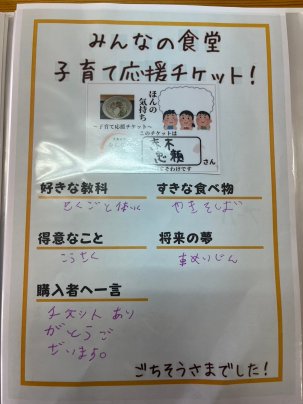 みんなの食堂
子育て応援チケット!
ほんの
気持ち
～子育て応援チケット～
このチケットは
さん
好きな教科
すきな食べ物
こくごと体いく
やきそば
得意なこと
将来の夢
こうさく
購入者へ一言
チケットあり
がとうご
ざいます。
ごちそうさまでした!